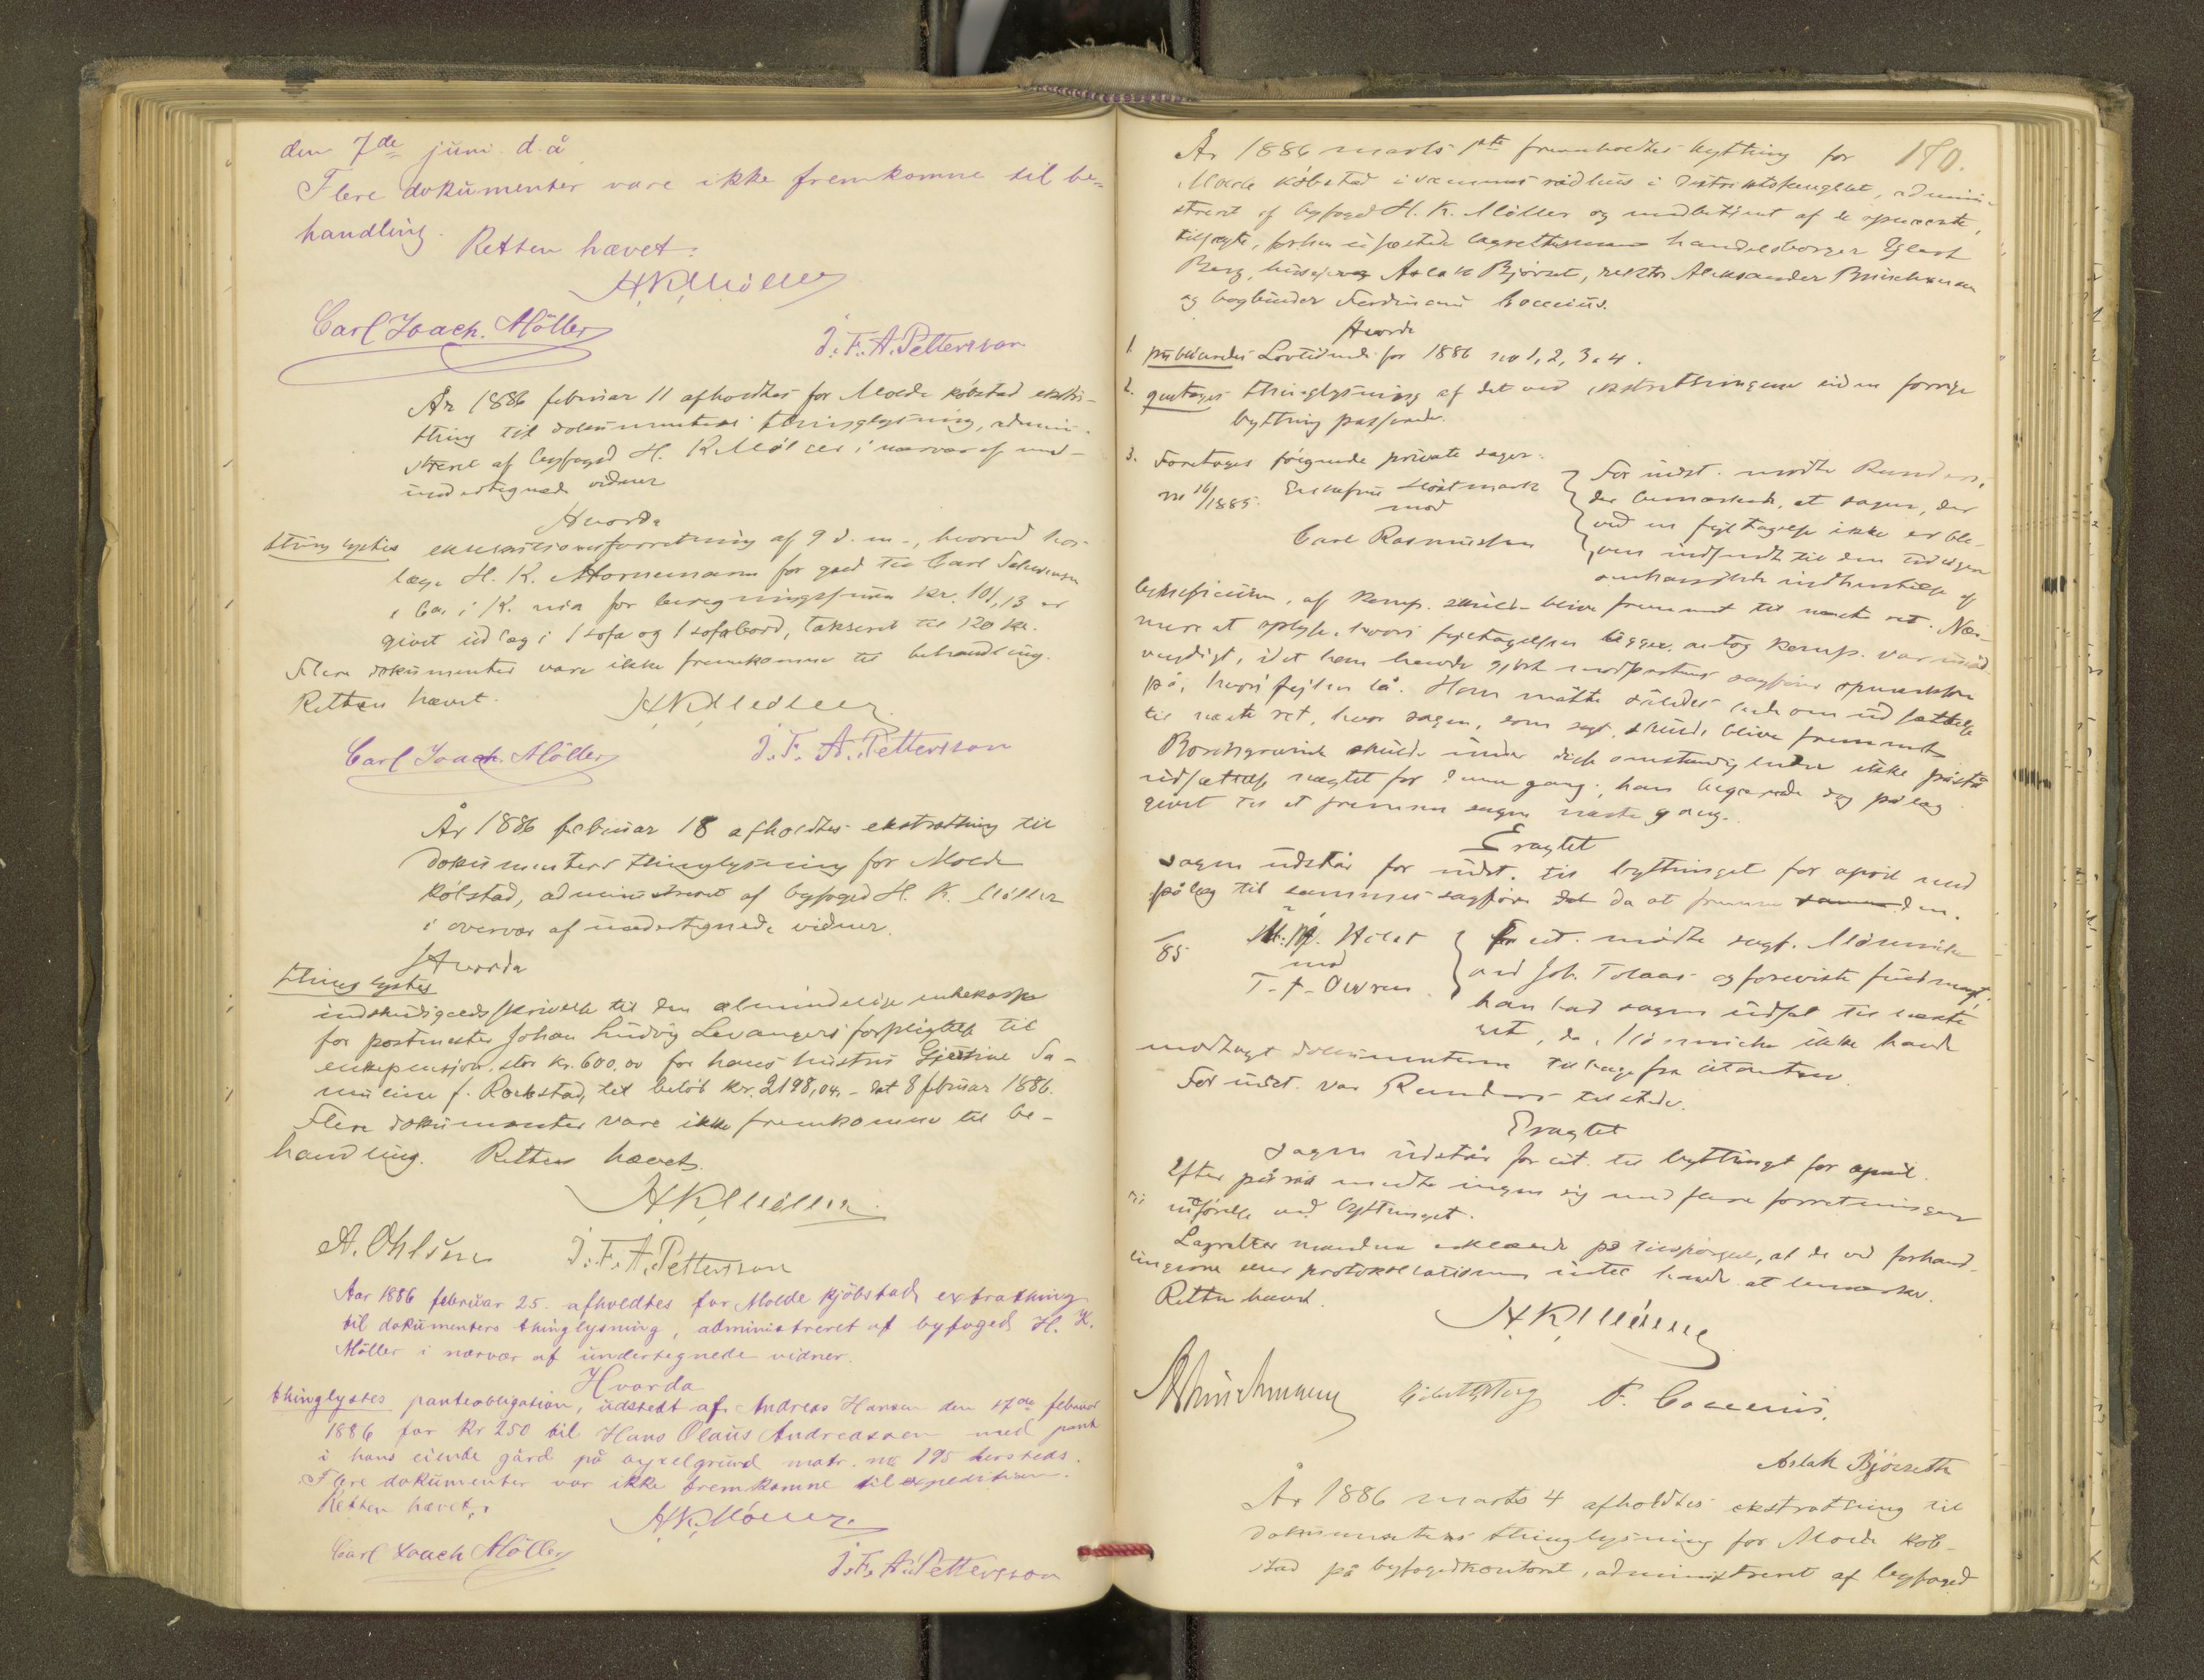 den 7de juni d. å
Flere dokumenter vare ikke fremkomne til be-
handling.
Retten hævet:
H.K.Møller
Carl Joach. Møller
J. F. A. Pettersson
År 1886 februar 11 afholdtes for Molde købstad ekstra-
thing til dokumenters thinglysning, admini-
streret af byfoged H. K. Møller i nærvær af
undertegnede vidner
Hvorda
thinglystes eksekutionsforretning af 9 d. m., hvorved
læge H. K. Hornemann for gæld til Carl
& Co. i K. for beregningssum kr. 101,13 er
givet udlæg i 1 sofa og 1 sofabord, takseret til 120 kr.
Flere dokumenter vare ikke fremkomne til behandling.
Retten hævet.
H.K.Møller
Carl Joach. Møller
J. F. A. Pettersson
År 1886 februar 18 afholdtes ekstrathing til
dokumenters thinglysning for Molde
købstad, administreret af byfoged H. K. Møller
i overvær af undertegnede vidner.
Hvorda
thinglystes
indskudsgældsskrivelse til den almindelige enkekasse
for postmester Johan Ludvig Levangers forpligtelse til
enkepensjon stor kr. 600,00 for hans hustru Gjertine Sa-
muline f. Rockstad, til beløb kr. 2198,04. - dat 8 februar 1886.
Flere dokumenter vare ikke fremkomne til be-
handling. Retten hævet.
H.K.Møller
A. Ohlsen
J. F. A. Pettersson
Aar 1886 februar 25. afholdtes for Molde kjöbstad extrathing
til dokumenters thinglysning, administreret af byfoged H. K.
Möller i nærvær af undertegnede vidner.
Hvorda
thinglystes panteobligation, udstedt af Andreas Hansen den 17de februar
1886 for kr 250 til Hans Olaus Andreassen med pant
i hans eiende gård på øyrelgrund matr. no 195 hersteds.
Flere dokumenter var ikke fremkomne til expedition.
Retten hævet,
H.K.Møller
Carl Joach Möller
J. F. A. Pettersson
180.
År 1886 marts 1ste fremholdtes bything for
Molde købstad i sammes rådhus i Distriktsfengslet, admini-
streret af byfoged H. K. Møller og medbetjent af de opnævnte,
tilsagte, forhen edfæstede lagrettesmænd handelsborger Gilert
Berg, huseier Aslak Bjørset, rektor Aleksander Brinchmann
og bogbinder Ferdinand Coccius.
Hvorda
1. publiceredes Lovtidende for 1886 no 1, 2, 3 & 4.
2. gentoges thinglysning af det ved ekstrathingene siden forrige
bything passerede.
3. Foretoges følgende private sager:
no 16/1885. Enkefru
mod
Carl Rasmussen
For indst. mødte Randers,
der bemærkede, at sagen, der
ved en fejltagelse ikke er ble-
ven indsendt til den tidligere
omhandlede indhentelse af
beneficium, af komp. skulde blive fremmet til næste ret. Nær-
mere at oplyse, hvori fejltagelsen ligger, antog komp. var unød-
vendigt, idet han havde gjort modpartens sagfører opmærksom
på, hvori fejlen lå. Han måtte således bede om udsættelse
til næste ret, hvor sagen, som sagt, skulde blive fremmet
Borchgrevink skulde under disse omstændigheder ikke påstå
udsættelse nægtet for denne gang; han begærede dog pålæg
givet til at fremme sagen næste gang.
Eragtet
sagen udstår for indst. til bythinget for april med
pålæg til sammes sagfører da at fremme den.
/85
mod
For cit. mødte sagf.
ved Joh. Tolaas og foreviste fuldmagt;
han bad sagen udsat til næste
ret, da ikke havde
modtaget dokumenterne tilbage fra citanten.
For indst. var Randers tilstede.
Eragtet
Sagen udstår for cit. til bythinget for april.
Efter påråb meldte ingen sig med flere forretninger
til udførelse ved bythinget.
Lagrettesmændene erklærede på tilspørgsel, at de ved forhand-
lingerne eller protokollationen intet havde at bemærke.
Retten hævet.
H.K.Møller
ABrinchmann
Gilert Berg
F. Coccius.
Aslak Bjørseth
År 1886 marts 4 afholdtes ekstrathing til
dokumenters thinglysning for Molde køb-
stad på byfogedkontoret, administreret af byfoged